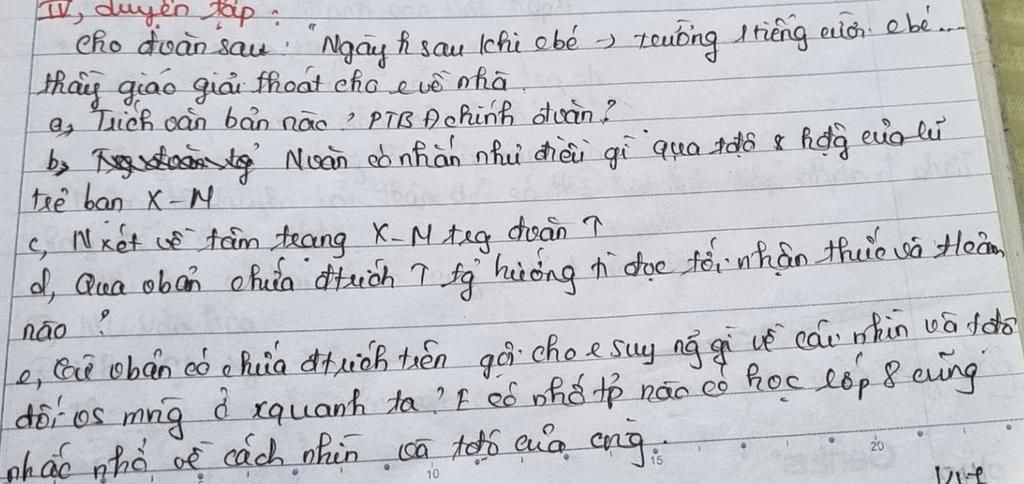 IV, Luyện tập :
Cho đoạn sau : "Ngày h sau khi cbé → tưởng tiếng cười cbé....
thầy giáo giải thoát cho e về nhà.
a, Trích văn bản nào ? PTBĐ chính đoạn ?
b, N xoàn có nhắn nhủ điều gì qua tđộ & hđg của lũ
trẻ bạn X-M
c, N xét về tâm trạng X-M trg đoạn ↑
d, Qua vbản chứa đtrích ↑ tg hướng n đọc tới nhận thức và tcảm
nào ?
e, Câu vbản có chứa đtrích trên gợi cho e suy ng gì về cái nhìn và tđộ
đối vs mng ở xquanh ta ? E có nhớ tp nào có học lớp 8 cũng
nhắc nhở về cách nhìn và tđộ của cng.
10 15 20